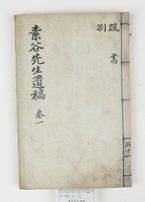 疏 書
劄
素谷先生遺稿 卷一